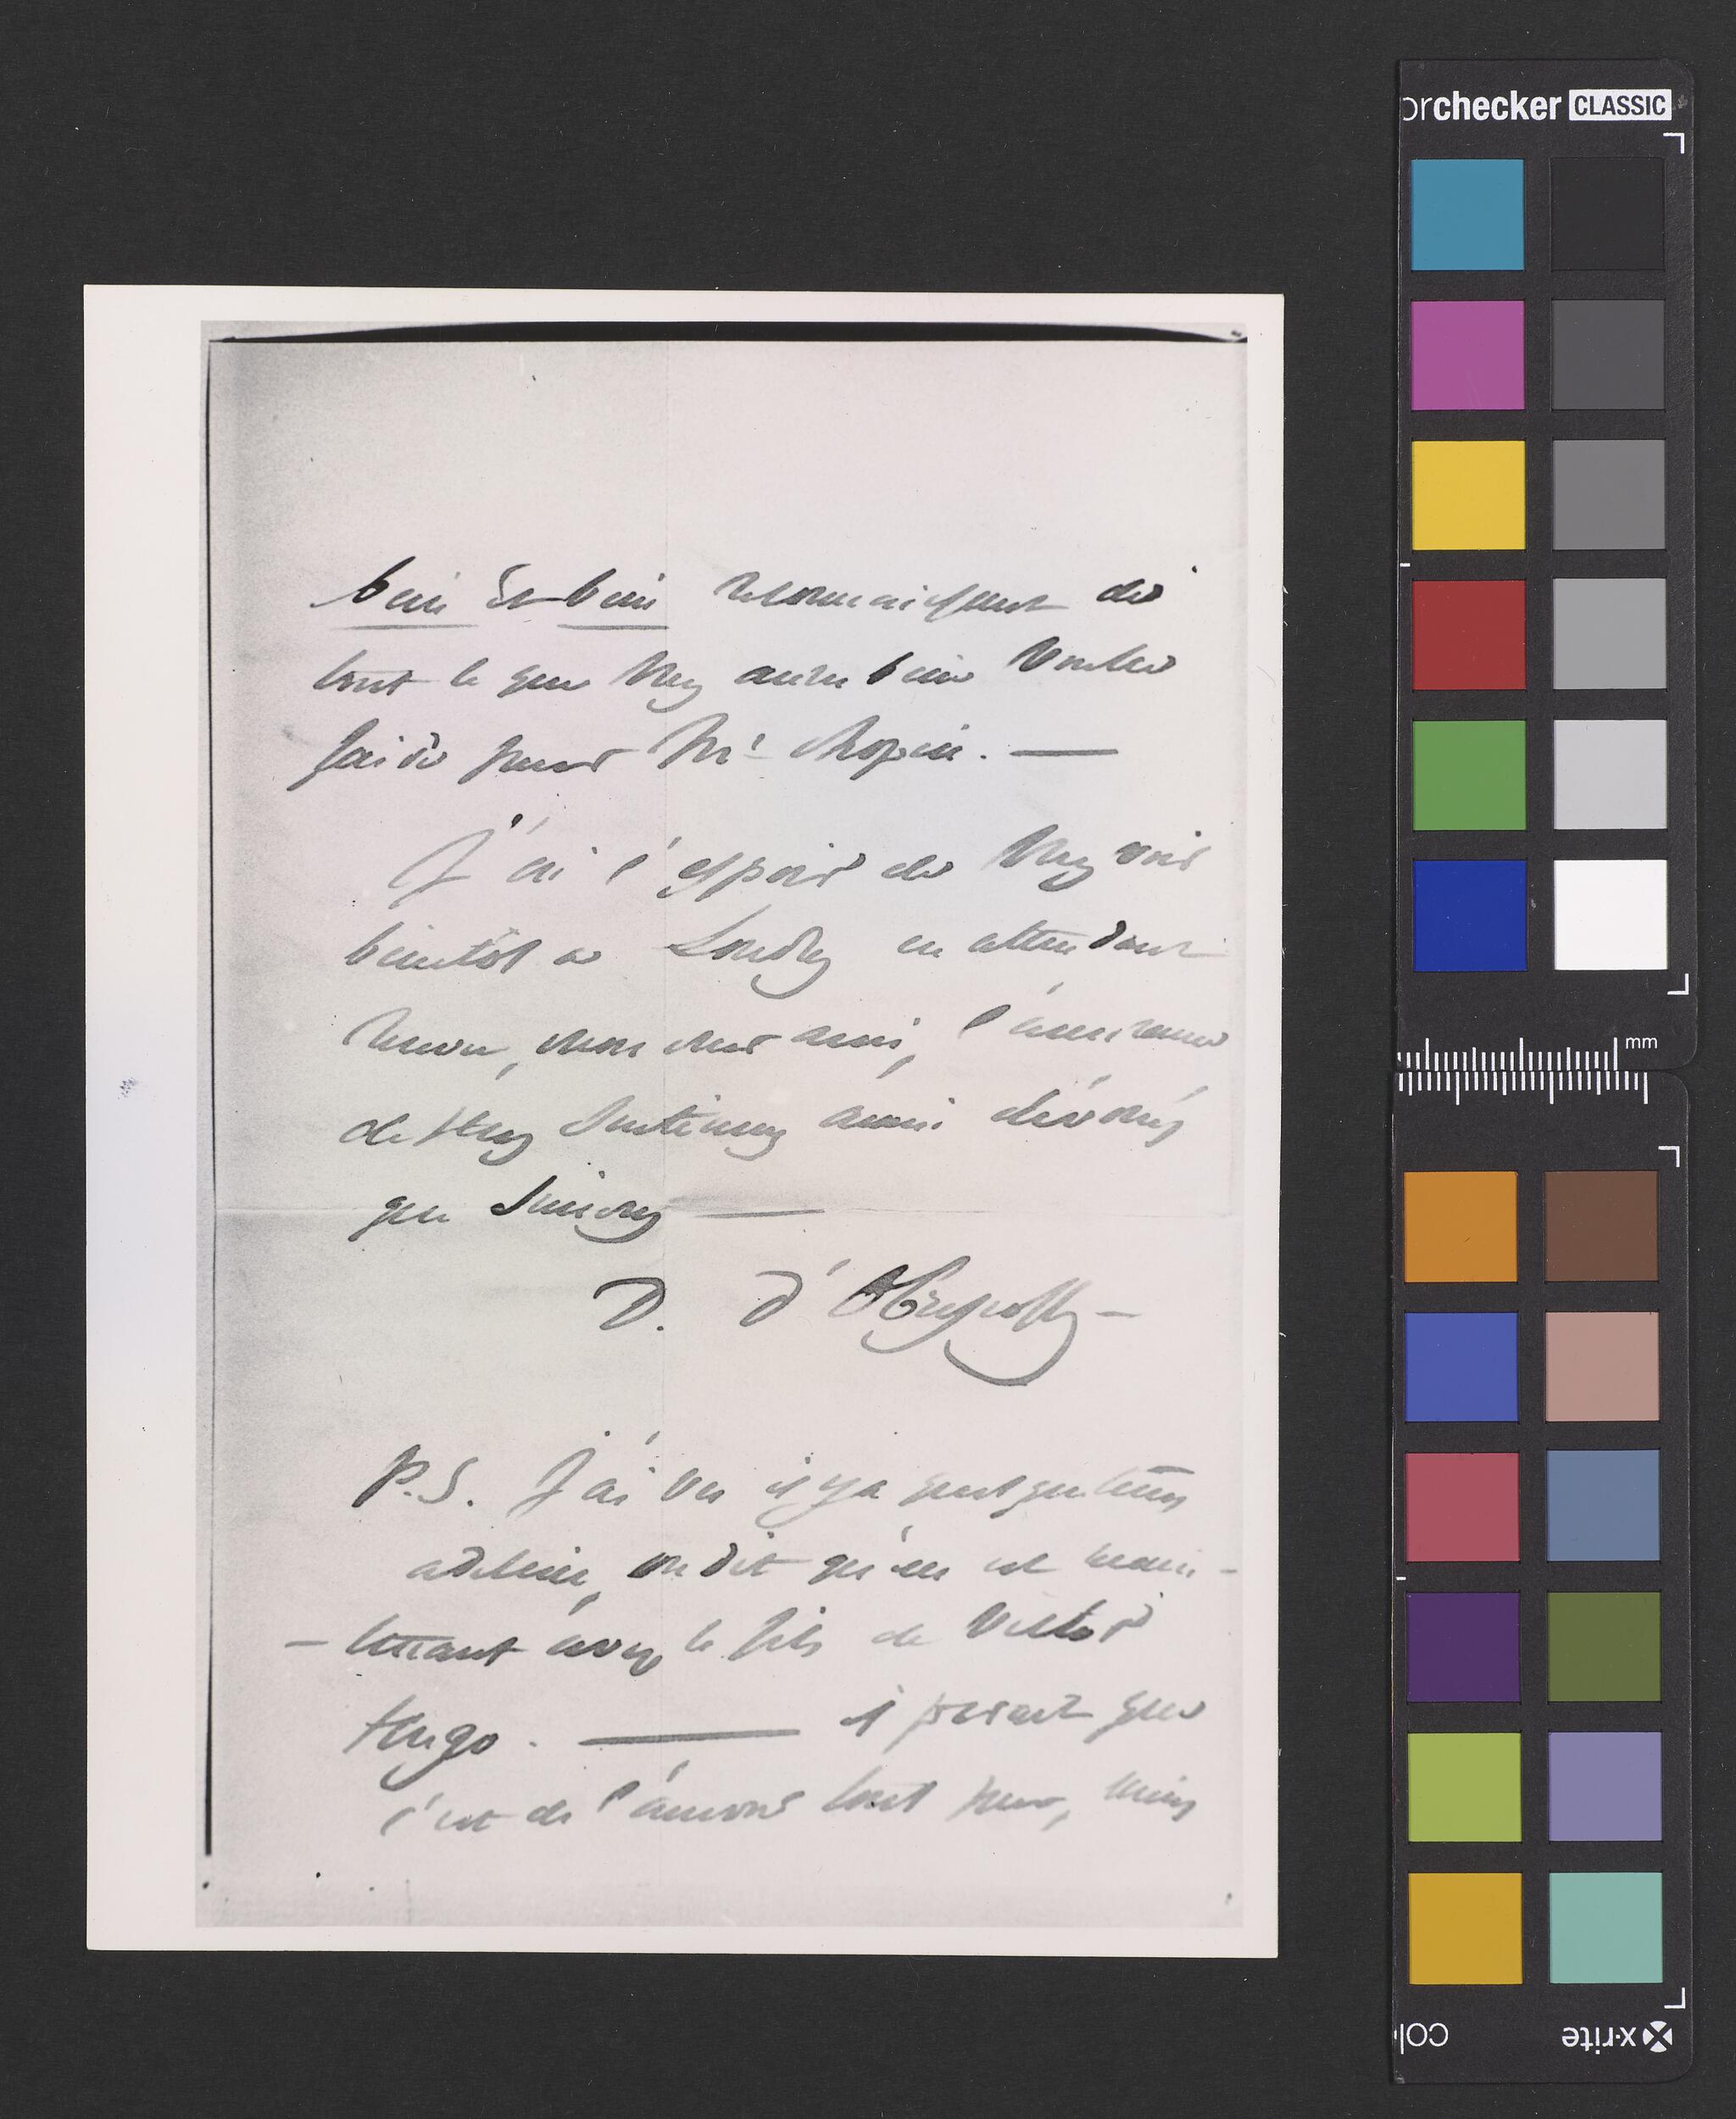 bien & bien reconnaissant de
tout ce que Vous aurez bien Vouloir
faire pour Mr Chopin. —
J'ai l'espoir de Vous voir
bientôt a Londres en attendant
mon cher ami, l'assurance
de Mes Sentimens aussi dévoués
que Sincères —
D. d'Obreskoff —
P.S. J'ai Vu il y a quelque tems
adeline, on dit qu'elle est main-
- tenant avec le fils de Victor
Hugo. — il parait que
c'est de l'amour tout pur, mais
orchecker CLASSIC
mm
x-rite
col